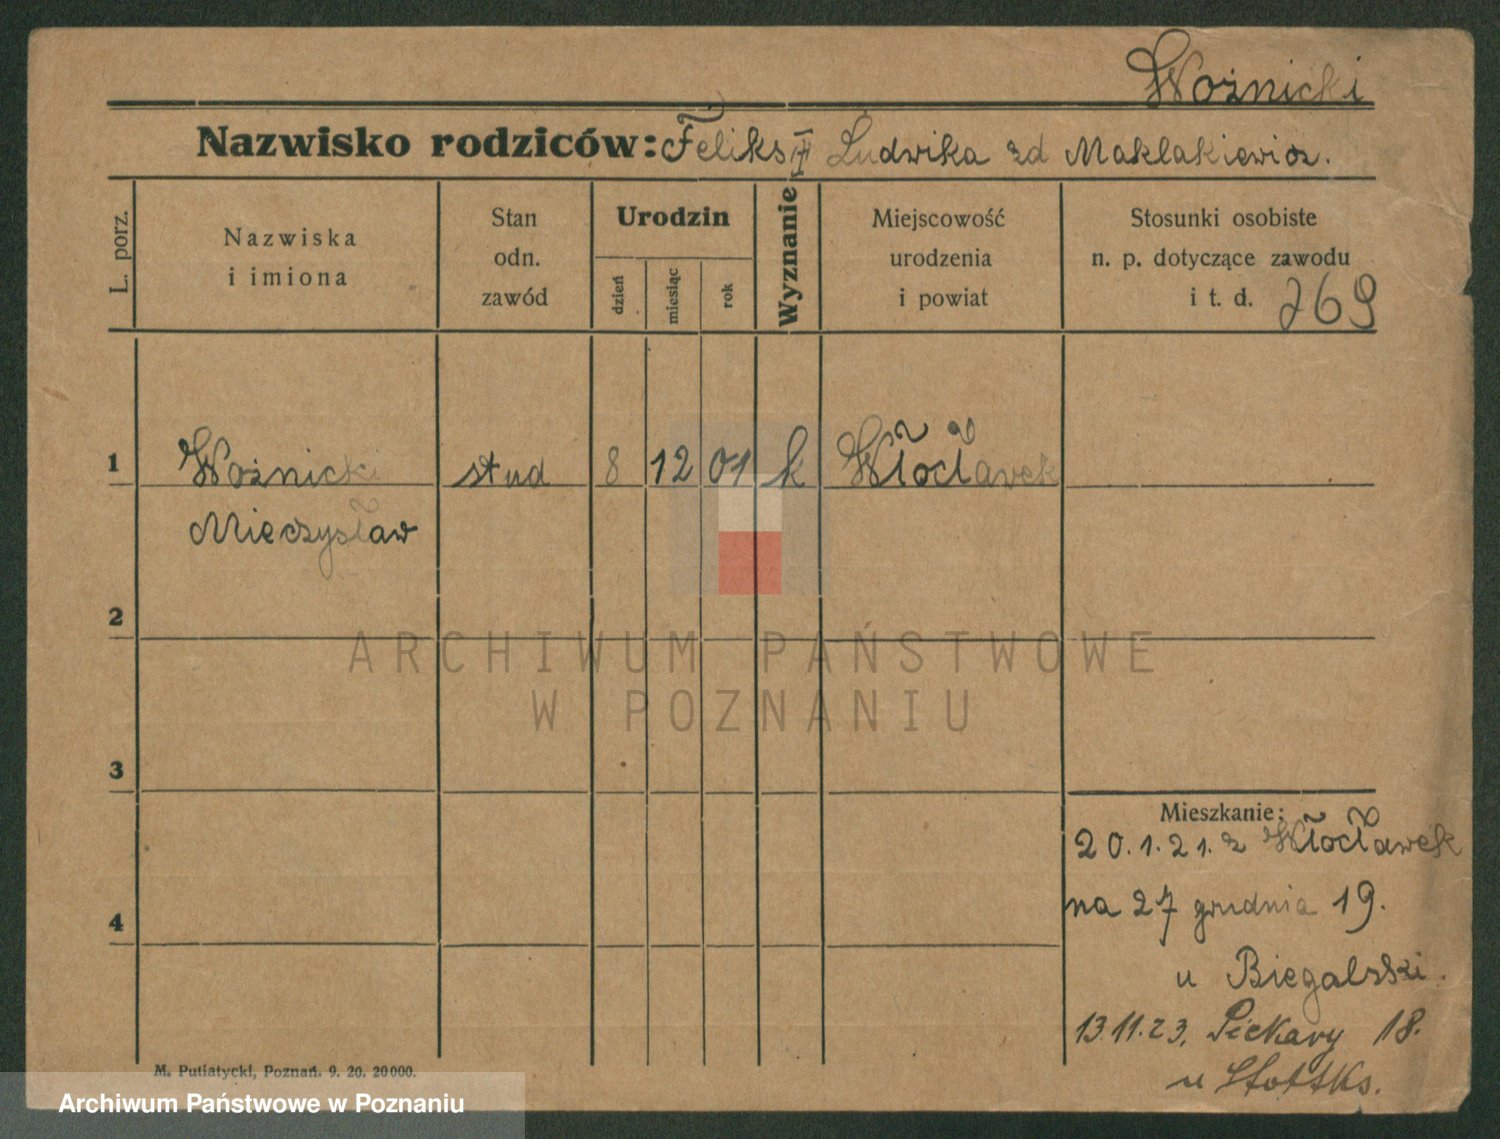 Woźnicki
Nazwisko rodziców: Feliks i Ludwika zd Maklakiewicz.
L. porz.
Nazwiska
i imiona
Stan
odn.
zawód
Urodzin
dzień
miesiąc
rok
Wyznanie
Miejscowość
urodzenia
i powiat
Stosunki osobiste
n. p. dotyczące zawodu
i t. d. 769
1 Woźnicki stud 8 12 01 k Włocławek
Mieczysław
2
ARCHIWUM PAŃSTWOWE
W POZNANIU
3
Mieszkanie:
20.1.21. z Włocławek
na 27 grudnia 19.
4
u Biegalski.
13.11.23. Piekary 18.
u
M. Putiatycki, Poznań. 9. 20. 20000.
Archiwum Państwowe w Poznaniu